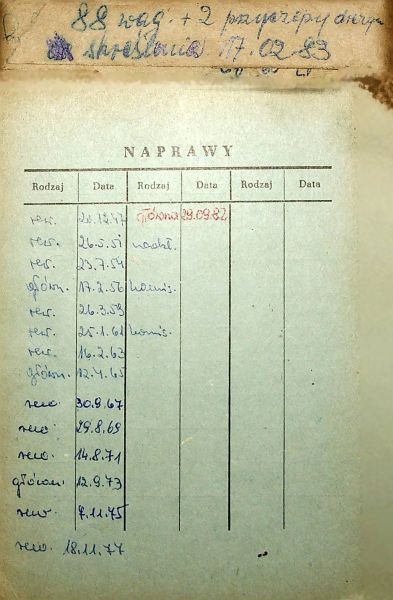 88 wag. + 2 przyczepy
skreślenia 17.02.83
NAPRAWY
Rodzaj Data Rodzaj Data Rodzaj Data
rew. 20.12.47 główna 29.09.82
rew. 26.5.51 nadzl.
rew. 23.7.54
główn. 17.2.56 komis.
rew. 26.3.59
rew. 25.1.61 komis.
rew. 16.2.63
główn. 12.4.65
rew. 30.9.67
rew. 29.8.69
rew. 14.8.71
główn. 12.9.73
rew. 7.11.75
rew. 18.11.77